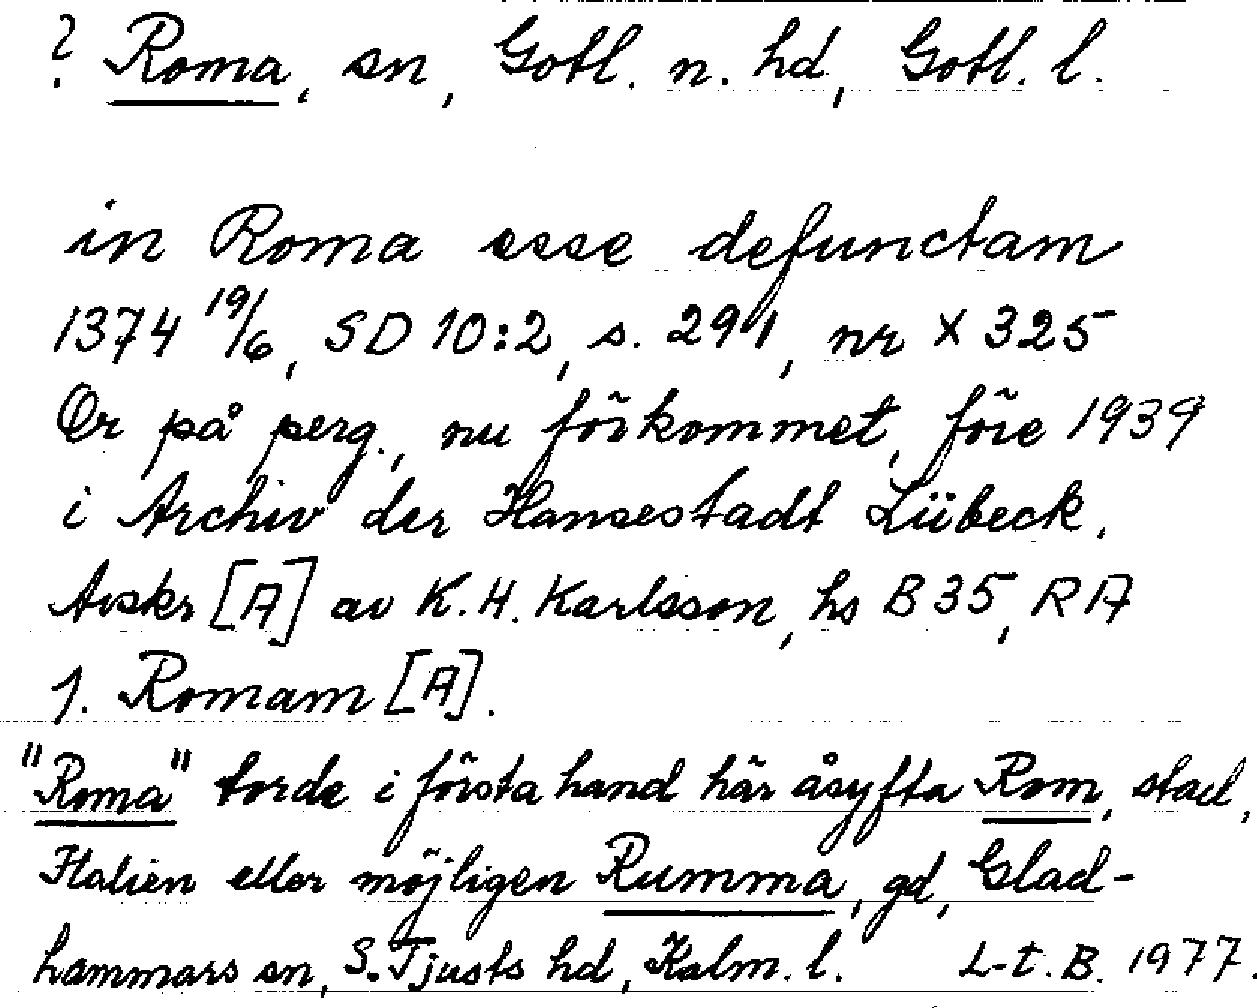 ? Roma, sn, Gotl. n. hd, Gotl. l.
in Roma esse defunctam
1374 19/6, SD 10:2, s. 291, nr X 325
Or på perg., nu förkommet, före 1939
i Archiv der Hansestadt Lübeck.
Avskr [A] av K.H. Karlsson, hs B 35, RA
1. Romam [A].
"Roma" torde i första hand här åsyfta Rom, stad,
Italien eller möjligen Rumma, gd, Glad-
hammars sn, S. Tjusts hd, Kalm. l. L-t. B. 1977.